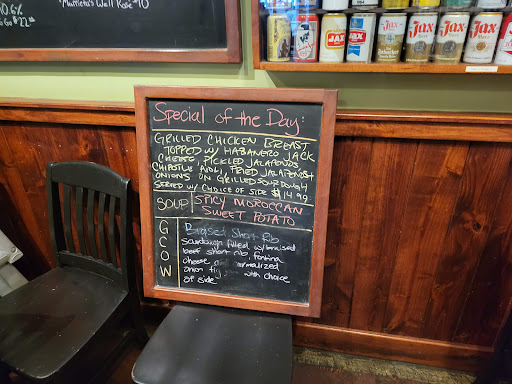 10.6%
$22
"Muffieta's Wall Rosé $10
JAX
Jax
Jax
Jax
Jax
Jax
Special of the Day:
GRILLED CHICKEN BREAST
TOPPED w/ HABANERO JACK
CHEESE, PICKLED JALAPENOS,
CHIPOTLE AIOLI, FRIED JALAPENOS +
ONIONS ON GRILLED SOURDOUGH
SERVED w/ CHOICE OF SIDE $14.99
SOUP
SPICY MOROCCAN
SWEET POTATO
GCOW
Braised Short Rib
Sourdough filled w/ braised
beef short rib, fontina
cheese and caramelized
onion with choice
of side